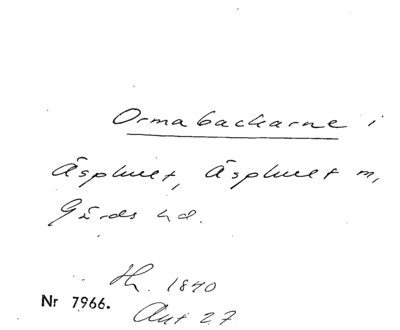 Ormabackarne i
Äsphult, Äsphult m,
Gärds hd.
Th. 1840
Nr 7966.
Akt 27